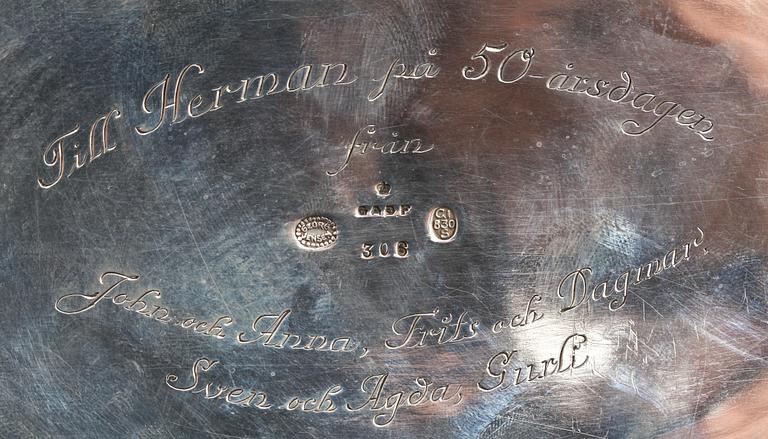 Till Herman på 50-årsdagen
från
GEORG JENSEN
GABF
GI 830 S
306
John och Anna, Frits och Dagmar,
Sven och Agda, Gurli